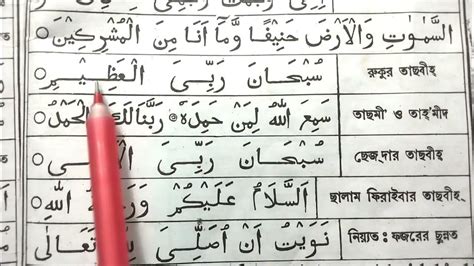 السَّمٰوٰتِ وَالْاَرْضَ حَنِيْفًا وَّمَآ اَنَا مِنَ الْمُشْرِكِيْنَ
سُبْحَانَ رَبِّىَ الْعَظِيْمِ রুকুর তাছবীহ
سَمِعَ اللّٰهُ لِمَنْ حَمِدَهٗ رَبَّنَا لَكَ الْحَمْدُ তাছমী ও তাহ্'মীদ
سُبْحَانَ رَبِّىَ ছেজ্দার তাছবীহ
اَلسَّلَامُ عَلَيْكُمْ اللّٰهِ ছালাম ফিরাইবার তাছবীহ
نَوَيْتُ اَنْ اُصَلِّىَ تَعَالٰى নিয়্যত: ফজরের ছুন্নত